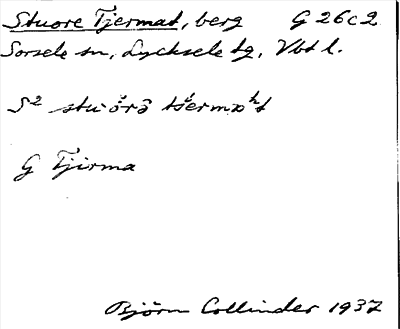 Stuore Tjermat, berg G 26c2
Sorsele sn, Lycksele tg, Vbt l.
S² stu·ŏrə̄ tšermɒʰt
G Tjirma
Björn Collinder 1937